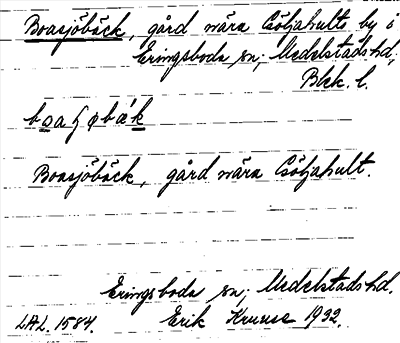 Boasjöbäck, gård nära Csöljahult by i
Eringsboda sn; Medelstads hd,
Blek. l.
Boasjöbäck, gård nära Csöljahult.
Eringsboda sn; Medelstads hd.
LAL. 1584. Erik Kruuse 1932.